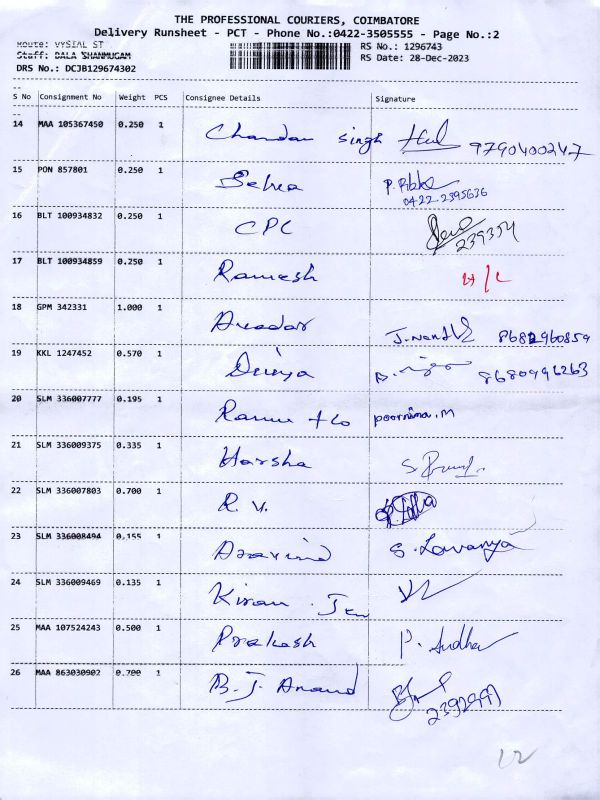 THE PROFESSIONAL COURIERS, COIMBATORE
Delivery Runsheet - PCT - Phone No.:0422-3505555 - Page No.:2
Route: VYSIAL ST
RS No.: 1296743
Staff: BALA SHANMUGAM
RS Date: 28-Dec-2023
DRS No.: DCJB129674302
S No Consignment No Weight PCS Consignee Details Signature
14 MAA 105367450 0.250 1 Chandan Singh 9790400247
15 PON 857801 0.250 1 0422-2395636
16 BLT 100934832 0.250 1 CPC
17 BLT 100934859 0.250 1 Ramesh
18 GPM 342331 1.000 1
19 KKL 1247452 0.570 1 Divya
20 SLM 336007777 0.195 1 poornima.M
21 SLM 336009375 0.335 1 Harsha
22 SLM 336007803 0.700 1 R.V.
23 SLM 336008494 0.155 1 Aravind S.Lavanya
24 SLM 336009469 0.135 1 Kiran
25 MAA 107524243 0.500 1 Prakash P. Sudha
26 MAA 863030902 0.700 1 B.J. Anand